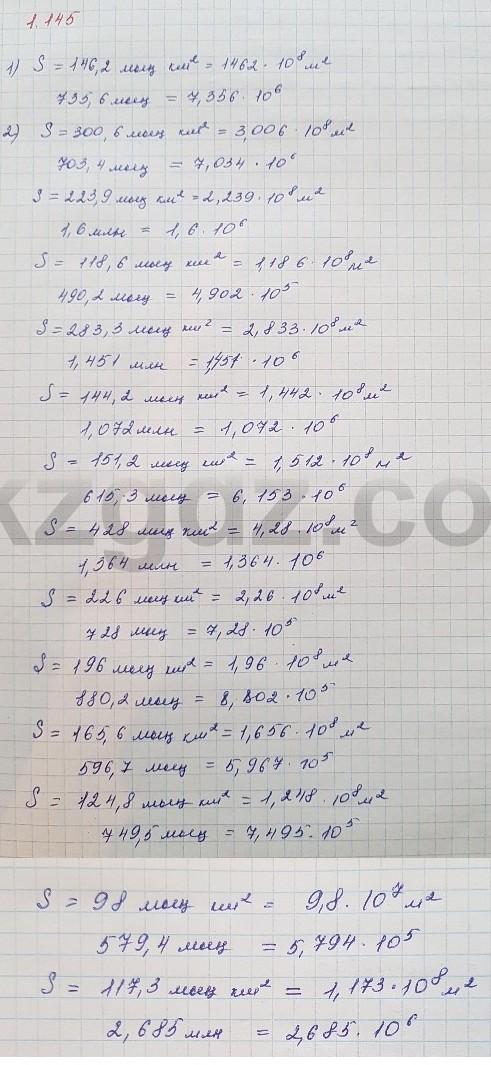 1.145
1) S = 146,2 мыңкм² = 1462 · 10⁸ м²
735,6 мың = 7,356 · 10⁶
2) S = 300,6 мың км² = 3,006 · 10⁸ м²
703,4 мың = 7,034 · 10⁶
S = 223,9 мың км² = 2,239 · 10⁸ м²
1,6 млн = 1,6 · 10⁶
S = 118,6 мың км² = 1,186 · 10⁸ м²
490,2 мың = 4,902 · 10⁵
S = 283,3 мың км² = 2,833 · 10⁸ м²
1,451 млн = 1,451 · 10⁶
S = 144,2 мың км² = 1,442 · 10⁸ м²
1,072 млн = 1,072 · 10⁶
S = 151,2 мың км² = 1,512 · 10⁸ м²
615,3 мың = 6,153 · 10⁶
kzgaz.co
S = 428 мың км² = 4,28 · 10⁸ м²
1,364 млн = 1,364 · 10⁶
S = 226 мың км² = 2,26 · 10⁸ м²
728 мың = 7,28 · 10⁵
S = 196 мың км² = 1,96 · 10⁸ м²
880,2 мың = 8,802 · 10⁵
S = 165,6 мың км² = 1,656 · 10⁸ м²
596,7 мың = 5,967 · 10⁵
S = 124,8 мың км² = 1,248 · 10⁸ м²
749,5 мың = 7,495 · 10⁵
S = 98 мың км² = 9,8 · 10⁷ м²
579,4 мың = 5,794 · 10⁵
S = 117,3 мың км² = 1,173 · 10⁸ м²
2,685 млн = 2,685 · 10⁶